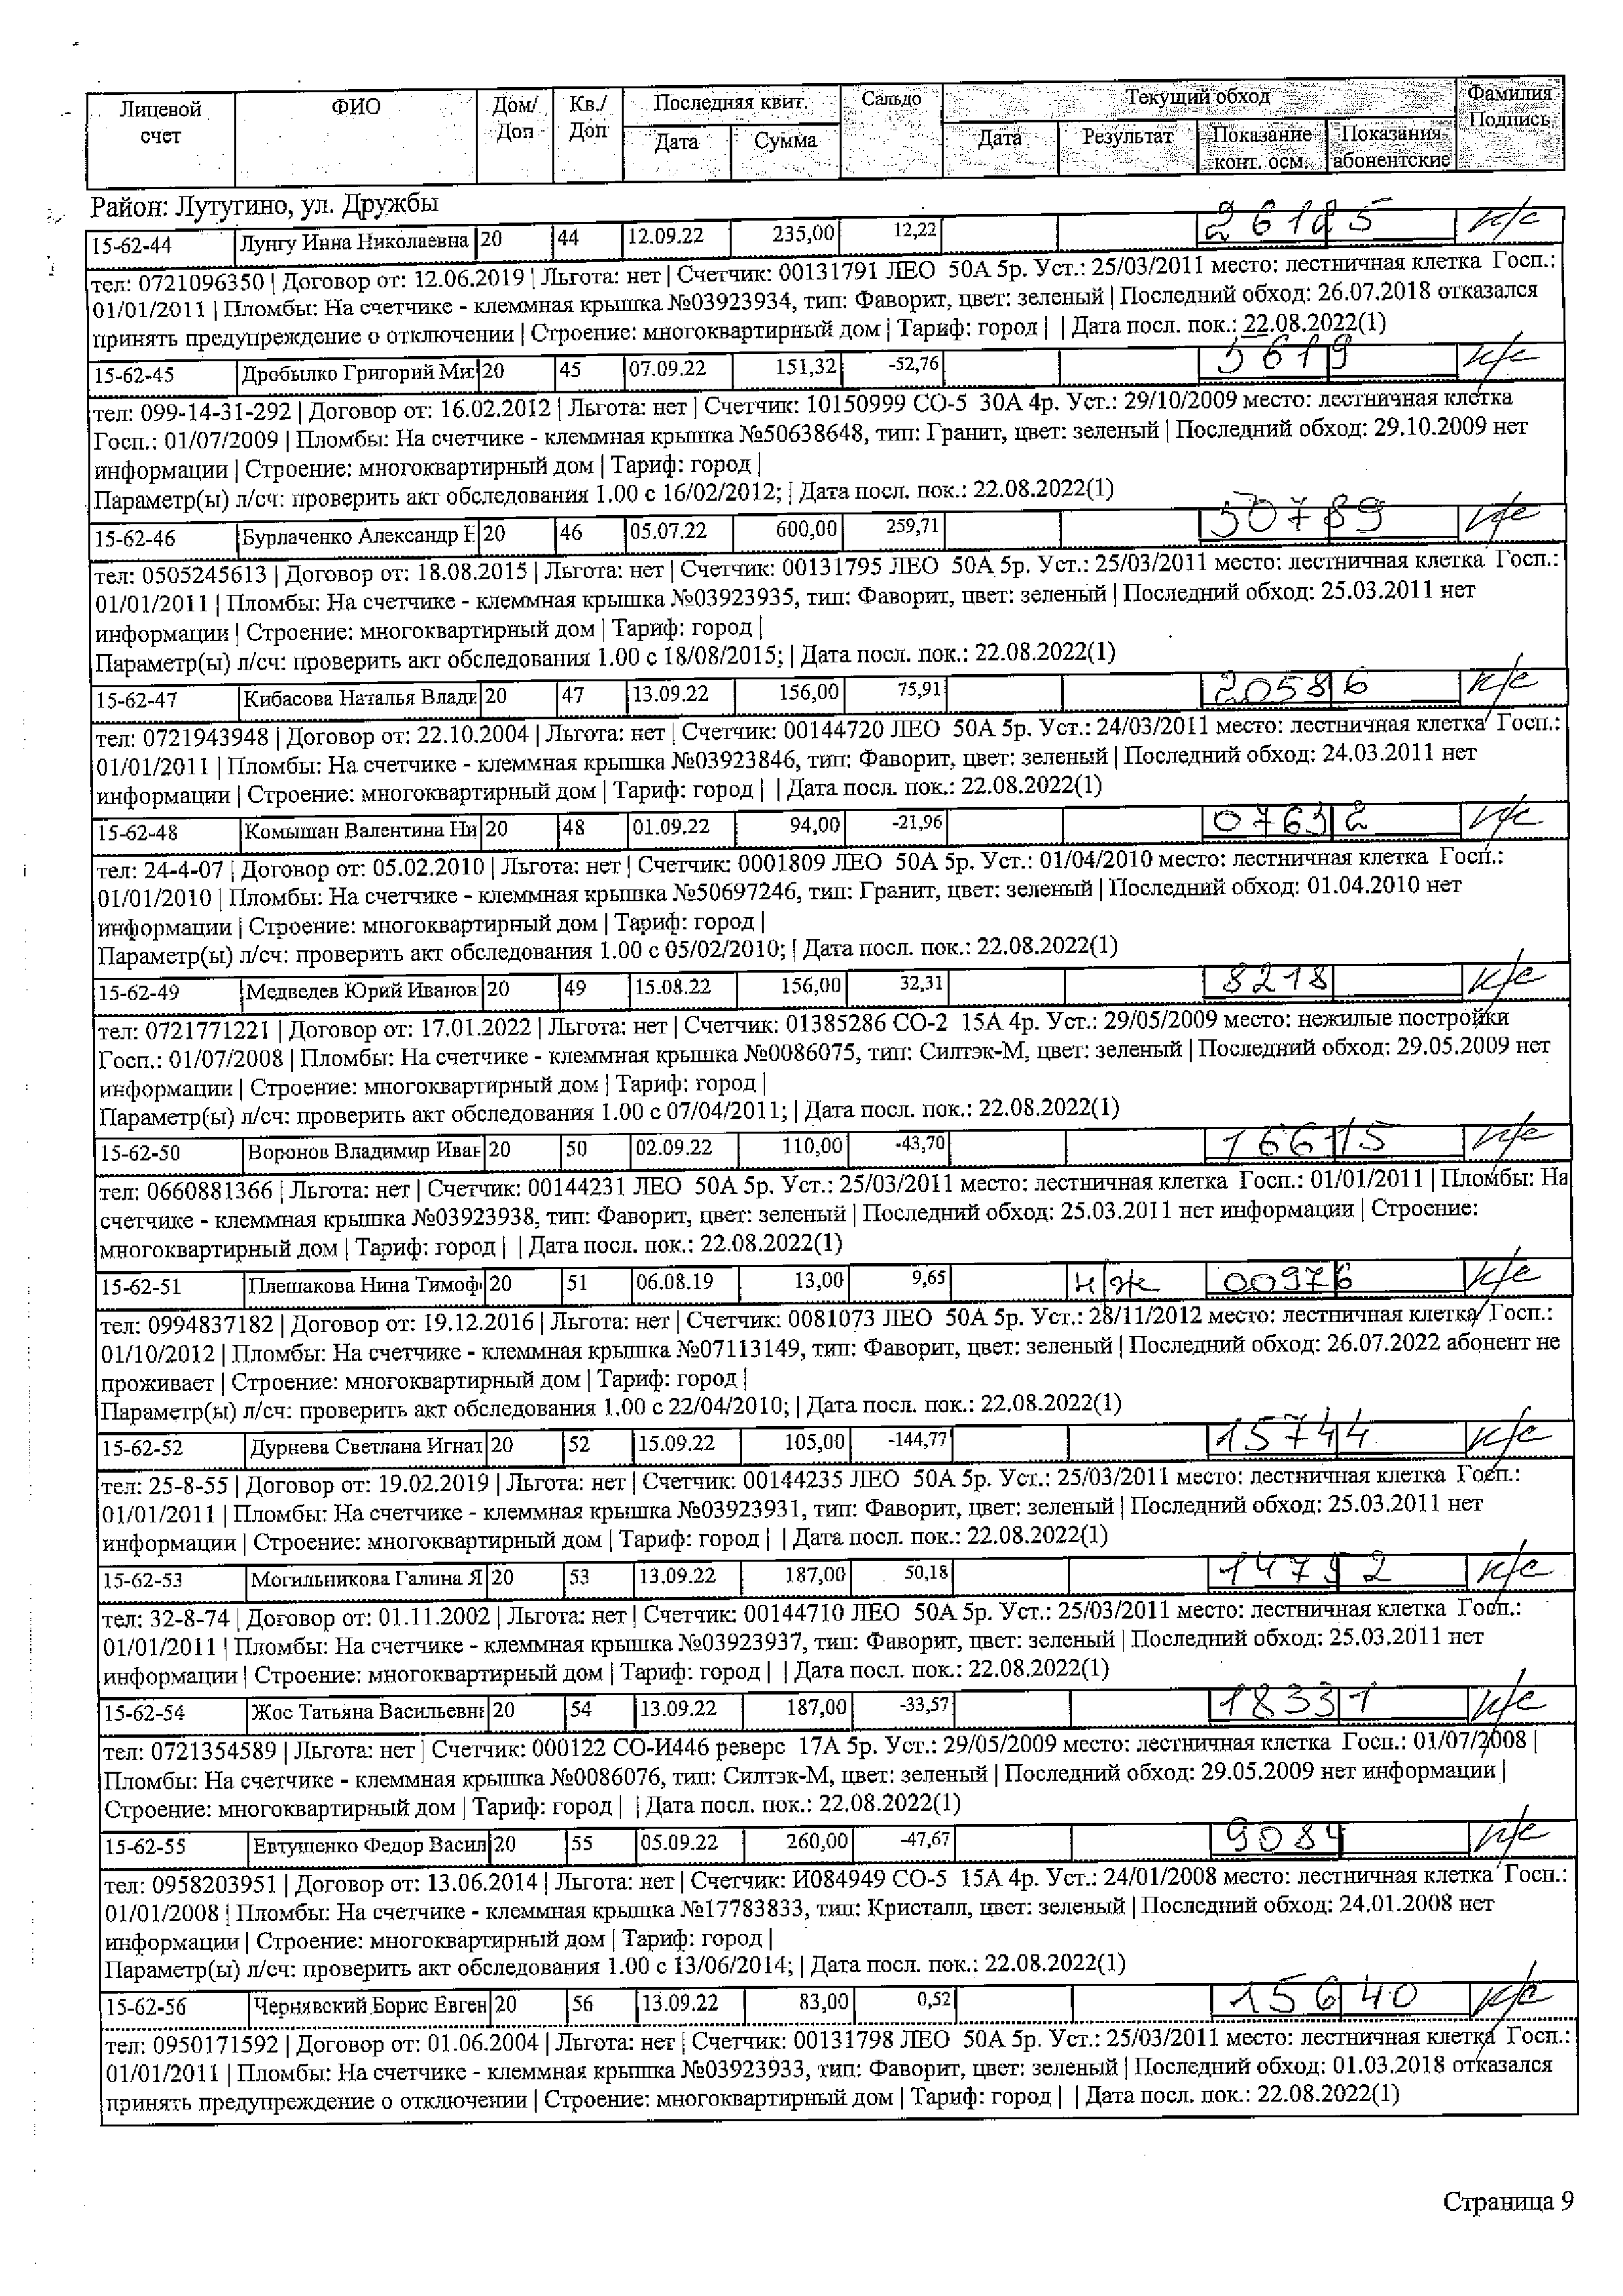 Лицевой счет ФИО Дом/ Доп Кв./ Доп Последняя квит. Дата Сумма Сальдо Текущий обход Дата Результат Показание конт. осм. Показания абонентские Фамилия Подпись
Район: Лутугино, ул. Дружбы
15-62-44 Лунгу Инна Николаевна 20 44 12.09.22 235,00 12,22 к/с
тел: 0721096350 | Договор от: 12.06.2019 | Льгота: нет | Счетчик: 00131791 ЛЕО 50А 5р. Уст.: 25/03/2011 место: лестничная клетка Госп.:
01/01/2011 | Пломбы: На счетчике - клеммная крышка №03923934, тип: Фаворит, цвет: зеленый | Последний обход: 26.07.2018 отказался
принять предупреждение о отключении | Строение: многоквартирный дом | Тариф: город | | Дата посл. пок.: 22.08.2022(1)
15-62-45 Дробылко Григорий Ми 20 45 07.09.22 151,32 -52,76 5619 к/с
тел: 099-14-31-292 | Договор от: 16.02.2012 | Льгота: нет | Счетчик: 10150999 СО-5 30А 4р. Уст.: 29/10/2009 место: лестничная клетка
Госп.: 01/07/2009 | Пломбы: На счетчике - клеммная крышка №50638648, тип: Гранит, цвет: зеленый | Последний обход: 29.10.2009 нет
информации | Строение: многоквартирный дом | Тариф: город |
Параметр(ы) л/сч: проверить акт обследования 1.00 с 16/02/2012; | Дата посл. пок.: 22.08.2022(1)
15-62-46 Бурлаченко Александр Н 20 46 05.07.22 600,00 259,71 50789 к/с
тел: 0505245613 | Договор от: 18.08.2015 | Льгота: нет | Счетчик: 00131795 ЛЕО 50А 5р. Уст.: 25/03/2011 место: лестничная клетка Госп.:
01/01/2011 | Пломбы: На счетчике - клеммная крышка №03923935, тип: Фаворит, цвет: зеленый | Последний обход: 25.03.2011 нет
информации | Строение: многоквартирный дом | Тариф: город |
Параметр(ы) л/сч: проверить акт обследования 1.00 с 18/08/2015; | Дата посл. пок.: 22.08.2022(1)
15-62-47 Кибасова Наталья Влади 20 47 13.09.22 156,00 75,91 20586 к/с
тел: 0721943948 | Договор от: 22.10.2004 | Льгота: нет | Счетчик: 00144720 ЛЕО 50А 5р. Уст.: 24/03/2011 место: лестничная клетка Госп.:
01/01/2011 | Пломбы: На счетчике - клеммная крышка №03923846, тип: Фаворит, цвет: зеленый | Последний обход: 24.03.2011 нет
информации | Строение: многоквартирный дом | Тариф: город | | Дата посл. пок.: 22.08.2022(1)
15-62-48 Комышан Валентина Ни 20 48 01.09.22 94,00 -21,96 07632 к/с
тел: 24-4-07 | Договор от: 05.02.2010 | Льгота: нет | Счетчик: 0001809 ЛЕО 50А 5р. Уст.: 01/04/2010 место: лестничная клетка Госп.:
01/01/2010 | Пломбы: На счетчике - клеммная крышка №50697246, тип: Гранит, цвет: зеленый | Последний обход: 01.04.2010 нет
информации | Строение: многоквартирный дом | Тариф: город |
Параметр(ы) л/сч: проверить акт обследования 1.00 с 05/02/2010; | Дата посл. пок.: 22.08.2022(1)
15-62-49 Медведев Юрий Иванов 20 49 15.08.22 156,00 32,31 8218 к/с
тел: 0721771221 | Договор от: 17.01.2022 | Льгота: нет | Счетчик: 01385286 СО-2 15А 4р. Уст.: 29/05/2009 место: нежилые постройки
Госп.: 01/07/2008 | Пломбы: На счетчике - клеммная крышка №0086075, тип: Силтэк-М, цвет: зеленый | Последний обход: 29.05.2009 нет
информации | Строение: многоквартирный дом | Тариф: город |
Параметр(ы) л/сч: проверить акт обследования 1.00 с 07/04/2011; | Дата посл. пок.: 22.08.2022(1)
15-62-50 Воронов Владимир Иван 20 50 02.09.22 110,00 -43,70 16615 к/с
тел: 0660881366 | Льгота: нет | Счетчик: 00144231 ЛЕО 50А 5р. Уст.: 25/03/2011 место: лестничная клетка Госп.: 01/01/2011 | Пломбы: На
счетчике - клеммная крышка №03923938, тип: Фаворит, цвет: зеленый | Последний обход: 25.03.2011 нет информации | Строение:
многоквартирный дом | Тариф: город | | Дата посл. пок.: 22.08.2022(1)
15-62-51 Плешакова Нина Тимоф 20 51 06.08.19 13,00 9,65 н/ж 00976 к/с
тел: 0994837182 | Договор от: 19.12.2016 | Льгота: нет | Счетчик: 0081073 ЛЕО 50А 5р. Уст.: 28/11/2012 место: лестничная клетка Госп.:
01/10/2012 | Пломбы: На счетчике - клеммная крышка №07113149, тип: Фаворит, цвет: зеленый | Последний обход: 26.07.2022 абонент не
проживает | Строение: многоквартирный дом | Тариф: город |
Параметр(ы) л/сч: проверить акт обследования 1.00 с 22/04/2010; | Дата посл. пок.: 22.08.2022(1)
15-62-52 Дурнева Светлана Игнат 20 52 15.09.22 105,00 -144,77 15744 к/с
тел: 25-8-55 | Договор от: 19.02.2019 | Льгота: нет | Счетчик: 00144235 ЛЕО 50А 5р. Уст.: 25/03/2011 место: лестничная клетка Госп.:
01/01/2011 | Пломбы: На счетчике - клеммная крышка №03923931, тип: Фаворит, цвет: зеленый | Последний обход: 25.03.2011 нет
информации | Строение: многоквартирный дом | Тариф: город | | Дата посл. пок.: 22.08.2022(1)
15-62-53 Могильникова Галина Я 20 53 13.09.22 187,00 50,18 к/с
тел: 32-8-74 | Договор от: 01.11.2002 | Льгота: нет | Счетчик: 00144710 ЛЕО 50А 5р. Уст.: 25/03/2011 место: лестничная клетка Госп.:
01/01/2011 | Пломбы: На счетчике - клеммная крышка №03923937, тип: Фаворит, цвет: зеленый | Последний обход: 25.03.2011 нет
информации | Строение: многоквартирный дом | Тариф: город | | Дата посл. пок.: 22.08.2022(1)
15-62-54 Жос Татьяна Васильевн 20 54 13.09.22 187,00 -33,57 18331 к/с
тел: 0721354589 | Льгота: нет | Счетчик: 000122 СО-И446 реверс 17А 5р. Уст.: 29/05/2009 место: лестничная клетка Госп.: 01/07/2008 |
Пломбы: На счетчике - клеммная крышка №0086076, тип: Силтэк-М, цвет: зеленый | Последний обход: 29.05.2009 нет информации |
Строение: многоквартирный дом | Тариф: город | | Дата посл. пок.: 22.08.2022(1)
15-62-55 Евтушенко Федор Васил 20 55 05.09.22 260,00 -47,67 9084 к/с
тел: 0958203951 | Договор от: 13.06.2014 | Льгота: нет | Счетчик: И084949 СО-5 15А 4р. Уст.: 24/01/2008 место: лестничная клетка Госп.:
01/01/2008 | Пломбы: На счетчике - клеммная крышка №17783833, тип: Кристалл, цвет: зеленый | Последний обход: 24.01.2008 нет
информации | Строение: многоквартирный дом | Тариф: город |
Параметр(ы) л/сч: проверить акт обследования 1.00 с 13/06/2014; | Дата посл. пок.: 22.08.2022(1)
15-62-56 Чернявский Борис Евген 20 56 13.09.22 83,00 0,52 15640 к/с
тел: 0950171592 | Договор от: 01.06.2004 | Льгота: нет | Счетчик: 00131798 ЛЕО 50А 5р. Уст.: 25/03/2011 место: лестничная клетка Госп.:
01/01/2011 | Пломбы: На счетчике - клеммная крышка №03923933, тип: Фаворит, цвет: зеленый | Последний обход: 01.03.2018 отказался
принять предупреждение о отключении | Строение: многоквартирный дом | Тариф: город | | Дата посл. пок.: 22.08.2022(1)
Страница 9